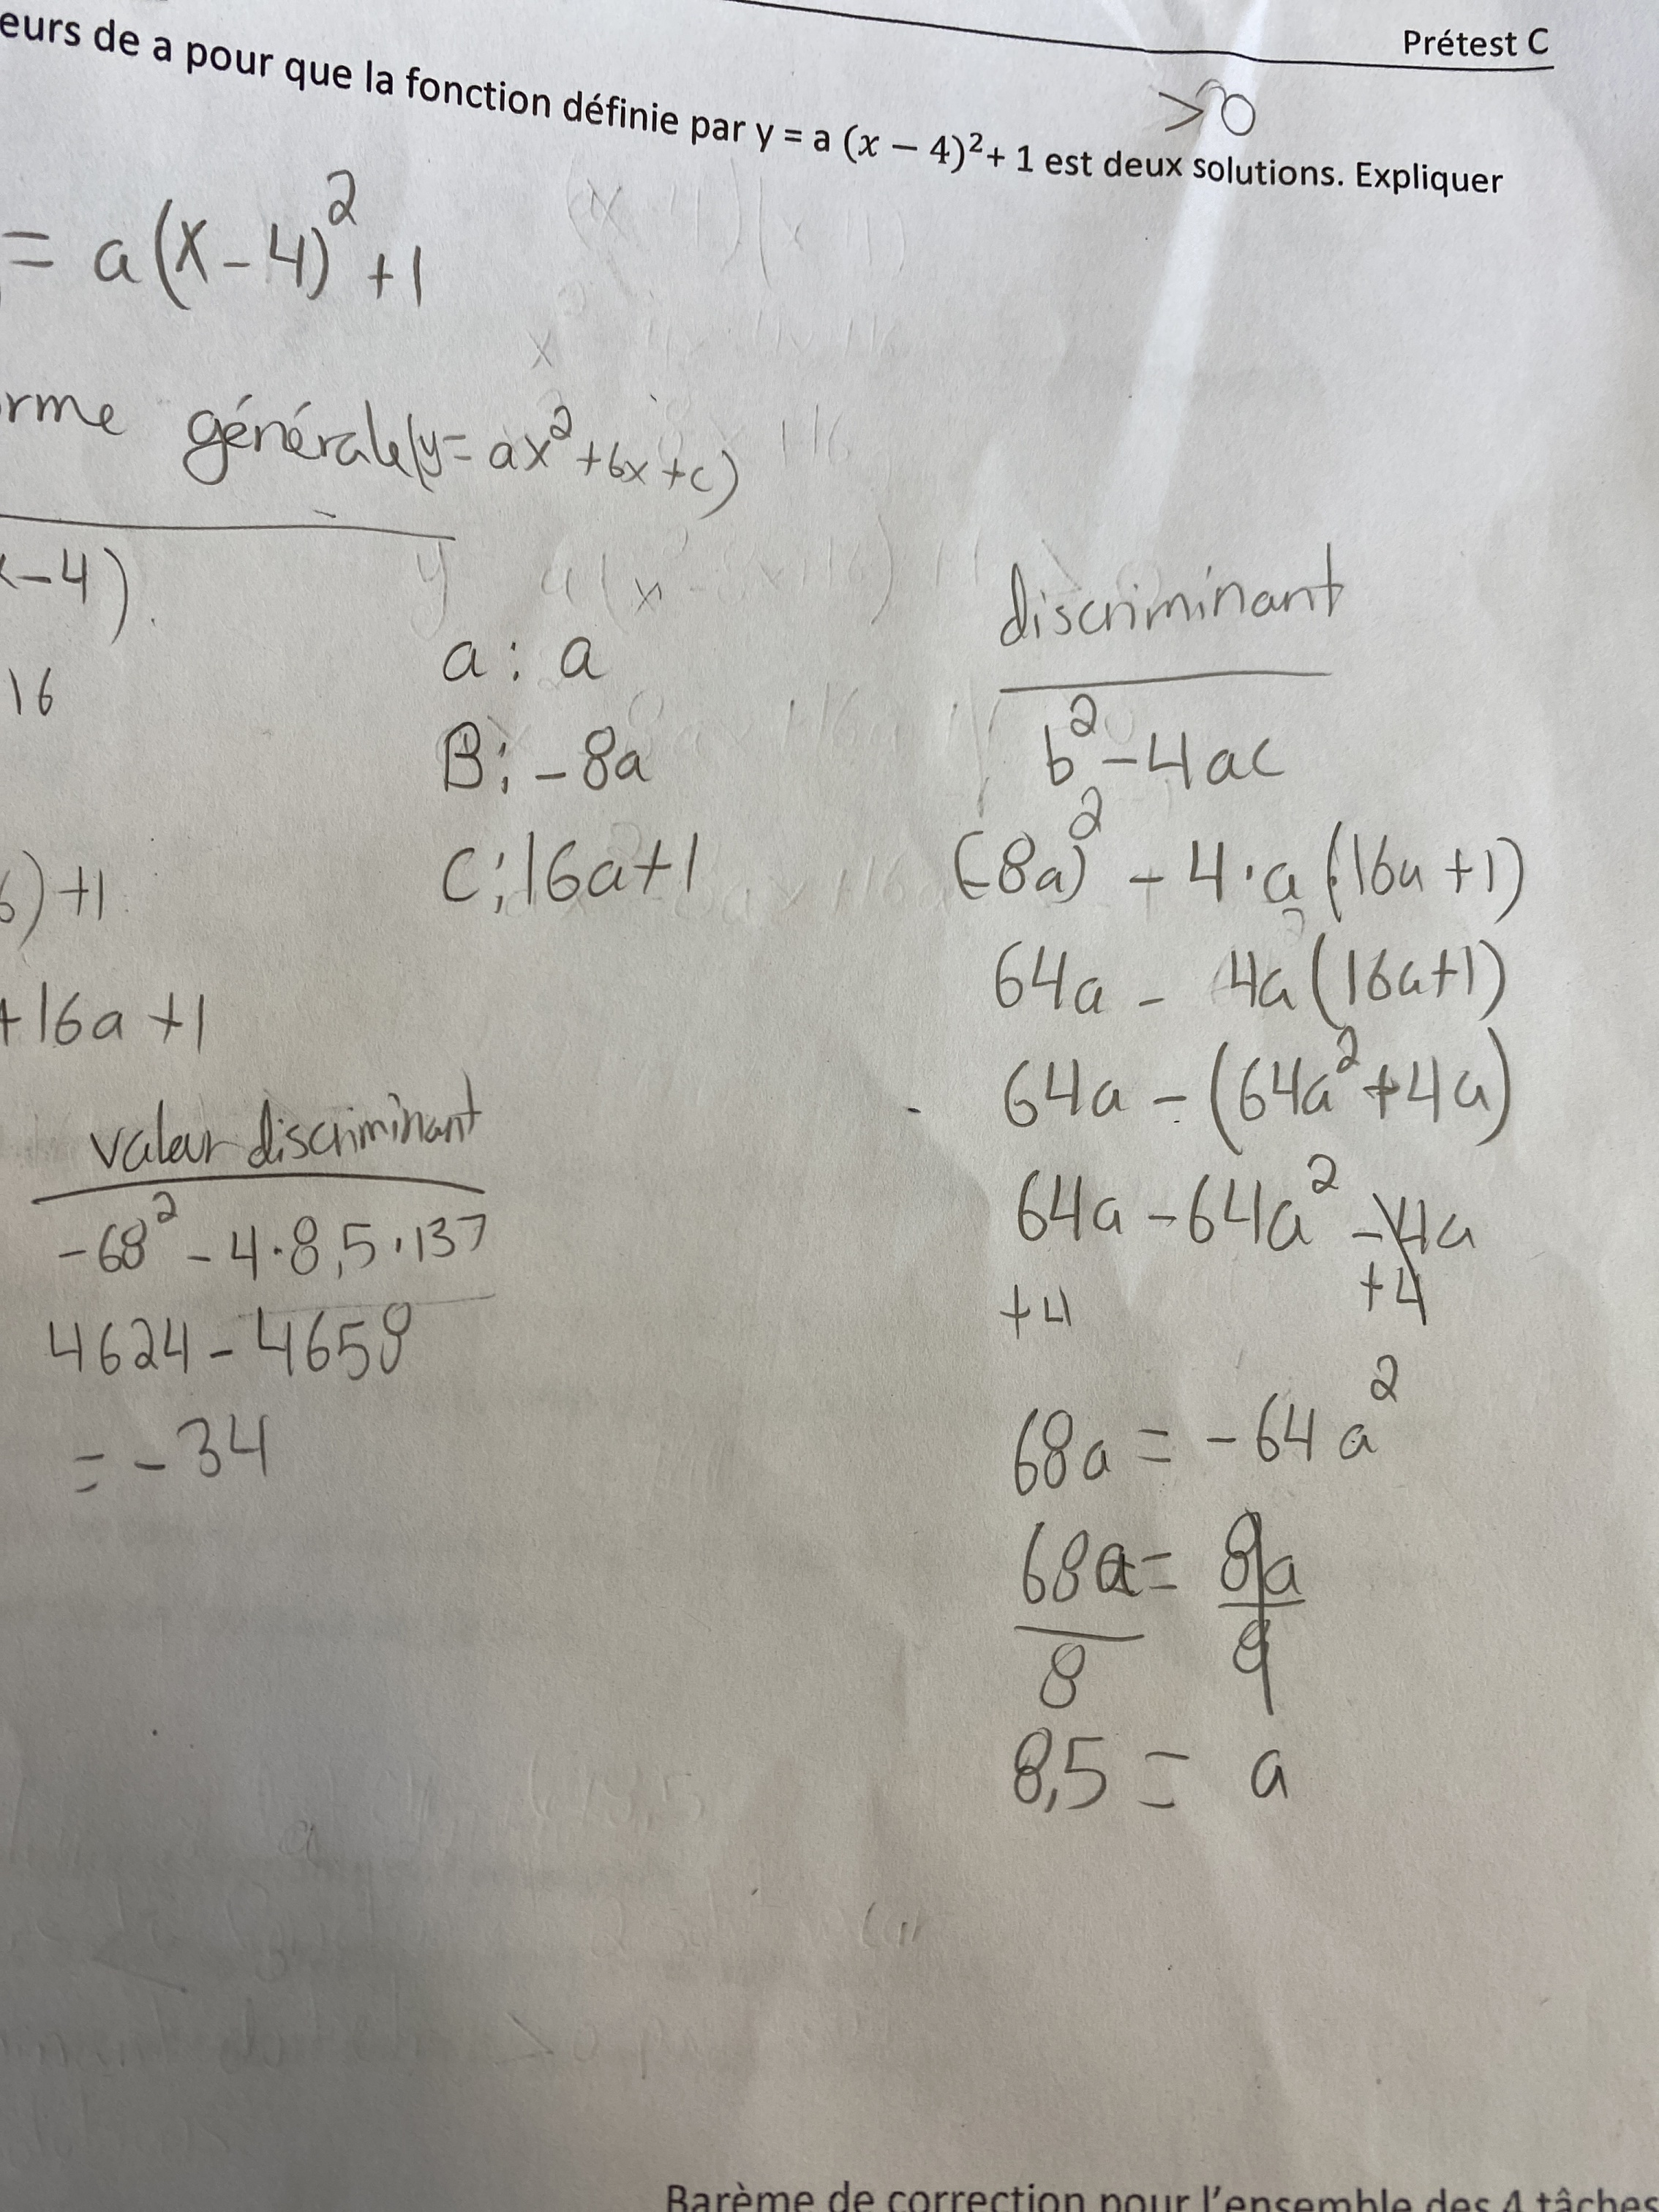 Prétest C
eurs de a pour que la fonction définie par y = a (x − 4)²+ 1 est deux solutions. Expliquer
>0
= a(x-4)² +1
rme générale(y= ax²+bx+c)
x-4).
16
6)+1
+16a+1
a: a
B: -8a
C: 16a+1
discriminant
b²-4ac
(-8a)² - 4·a(16a+1)
64a - 4a(16a+1)
64a - (64a²+4a)
64a -64a² -4a
+4 +4
68a = -64a²
68a = 8a
8 8
8,5 = a
valeur discriminant
-68² - 4·8,5·137
4624 - 4658
= -34
Barème de correction pour l'ensemble des 4 tâches